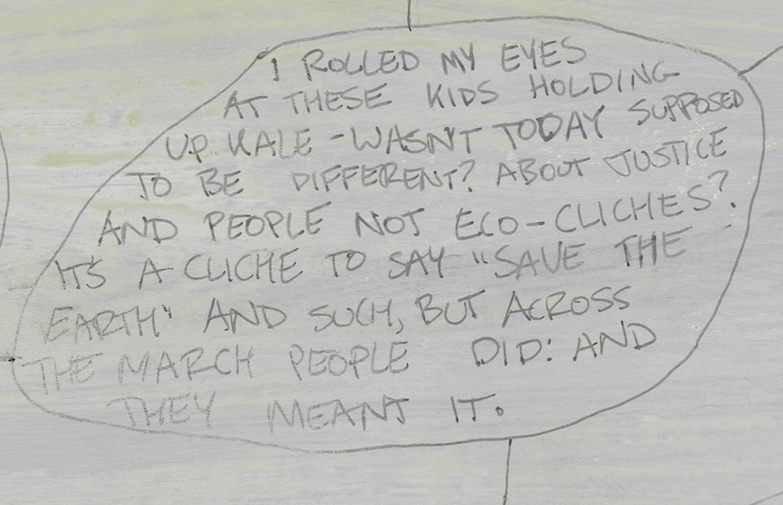 I ROLLED MY EYES
AT THESE KIDS HOLDING
UP KALE - WASN'T TODAY SUPPOSED
TO BE DIFFERENT? ABOUT JUSTICE
AND PEOPLE NOT ECO-CLICHES?
IT'S A CLICHE TO SAY "SAVE THE
EARTH" AND SUCH, BUT ACROSS
THE MARCH PEOPLE DID: AND
THEY MEANT IT.